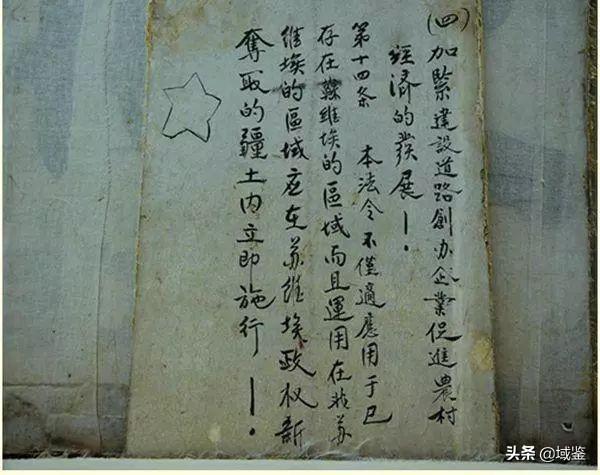 (四)加緊建設道路創办企業促進農村
經濟的發展—.
第十四条 本法令不僅適應用于已
存在蘇維埃的區域而且運用在非苏
維埃的區域应在苏維埃政权新
奪取的疆土内立即施行—.
头条 @域鉴